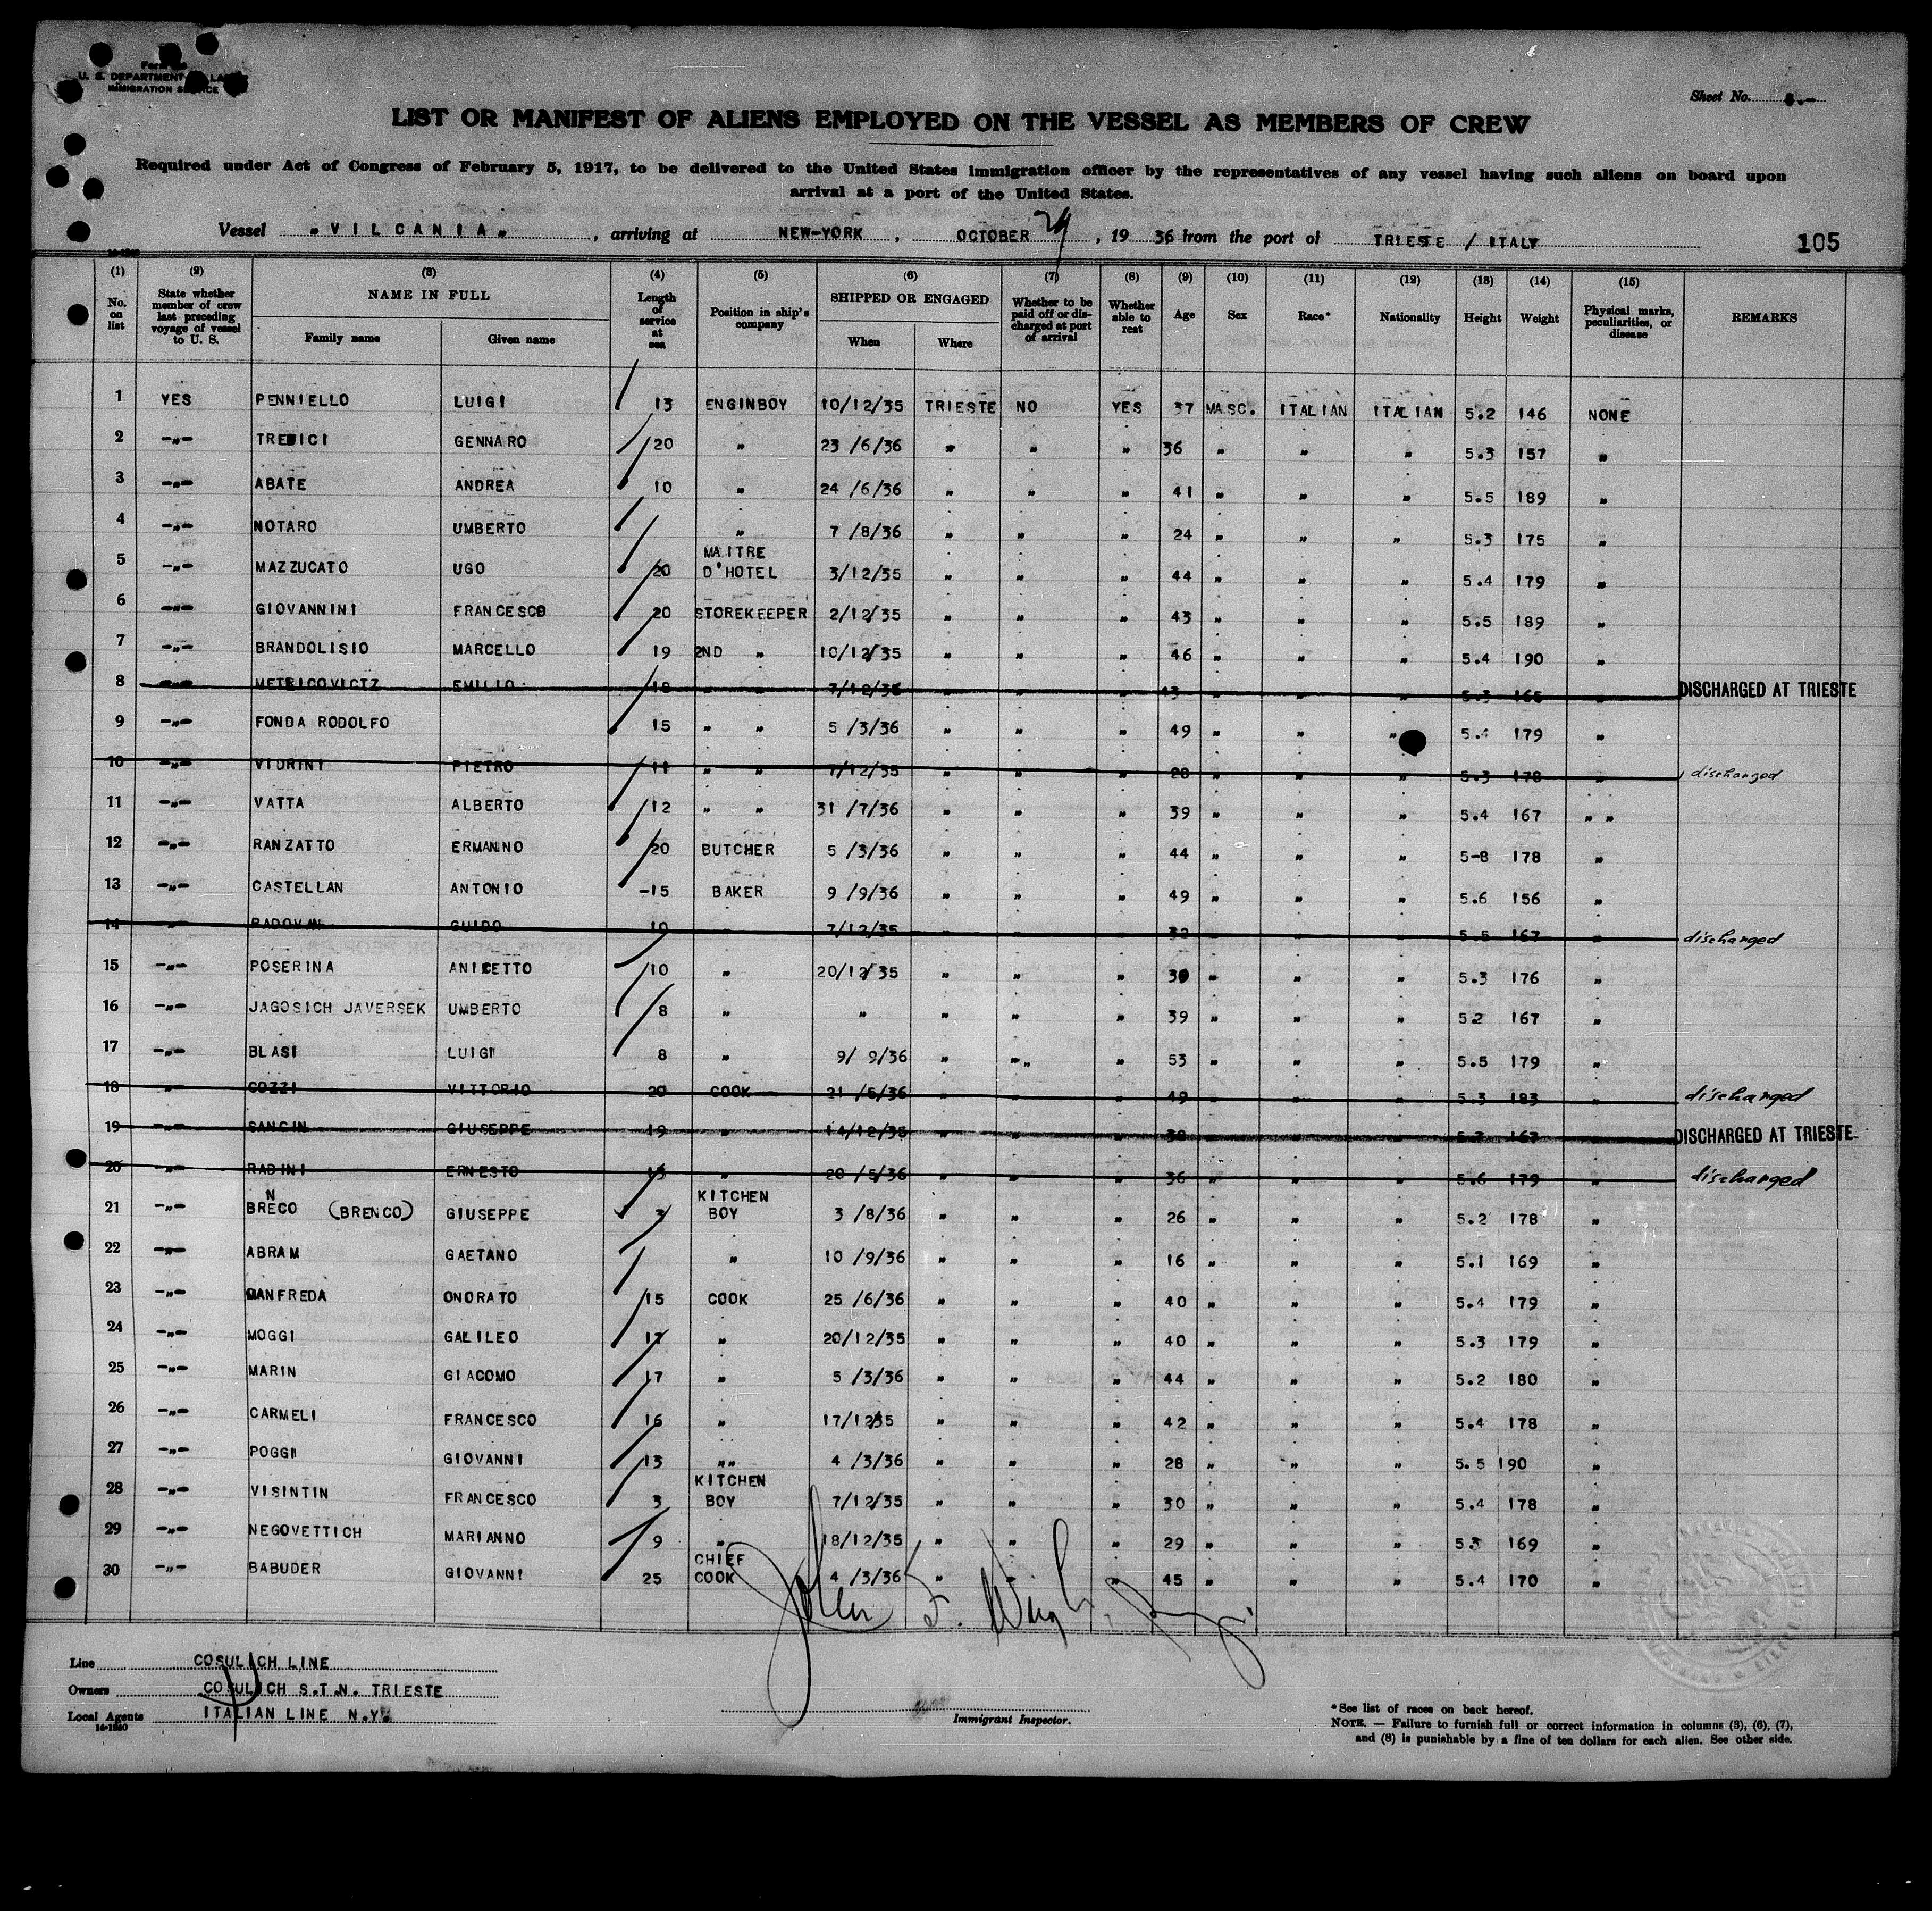 U. S. DEPARTMENT
IMMIGRATION
Sheet No.
LIST OR MANIFEST OF ALIENS EMPLOYED ON THE VESSEL AS MEMBERS OF CREW
Required under Act of Congress of February 5, 1917, to be delivered to the United States immigration officer by the representatives of any vessel having such aliens on board upon
arrival at a port of the United States.
Vessel „VILCANIA„ , arriving at NEW-YORK , OCTOBER 29 , 19 36 from the port of TRIESTE / ITALY 105
(1) (2) (3) (4) (5) (6) (7) (8) (9) (10) (11) (12) (13) (14) (15)
No. on list State whether member of crew last preceding voyage of vessel to U. S. NAME IN FULL Length of service at sea Position in ship's company SHIPPED OR ENGAGED Whether to be paid off or discharged at port of arrival Whether able to reat Age Sex Race* Nationality Height Weight Physical marks, peculiarities, or disease REMARKS
Family name Given name When Where
1 YES PENNIELLO LUIGI 13 ENGINBOY 10/12/35 TRIESTE NO YES 37 MASC. ITALIAN ITALIAN 5.2 146 NONE
2 -„- TREDICI GENNARO 20 „ 23 /6/36 „ „ „ 36 „ „ „ 5.3 157 „
3 -„- ABATE ANDREA 10 „ 24 /6/36 „ „ „ 41 „ „ „ 5.5 189 „
4 -„- NOTARO UMBERTO „ 7 /8/36 „ „ „ 24 „ „ „ 5.3 175 „
5 -„- MAZZUCATO UGO 20 MAITRE D'HOTEL 3/12/35 „ „ „ 44 „ „ „ 5.4 179 „
6 -„- GIOVANNINI FRANCESCO 20 STOREKEEPER 2/12/35 „ „ „ 43 „ „ „ 5.5 189 „
7 -„- BRANDOLISIO MARCELLO 19 2ND „ 10/12/35 „ „ „ 46 „ „ „ 5.4 190 „
8 -„- METRICOVICTZ EMILIO 18 „ „ 7/12/35 „ „ „ 43 „ „ „ 5.3 165 „ DISCHARGED AT TRIESTE
9 -„- FONDA RODOLFO 15 „ „ 5 /3/36 „ „ „ 49 „ „ „ 5.4 179 „
10 -„- VIDRINI PIETRO 11 „ „ 7/12/35 „ „ „ 28 „ „ „ 5.3 178 „ discharged
11 -„- VATTA ALBERTO 12 „ „ 31 /7/36 „ „ „ 39 „ „ „ 5.4 167 „ „
12 -„- RANZATTO ERMANNO 20 BUTCHER 5 /3/36 „ „ „ 44 „ „ „ 5-8 178 „
13 -„- CASTELLAN ANTONIO -15 BAKER 9 /9/36 „ „ „ 49 „ „ „ 5.6 156 „
14 -„- RADOVAN GUIDO 10 „ 7/12/35 „ „ „ 32 „ „ „ 5.5 167 „ discharged
15 -„- POSERINA ANICETTO 10 „ 20/12/35 „ „ „ 30 „ „ „ 5.3 176 „
16 -„- JAGOSICH JAVERSEK UMBERTO 8 „ „ „ „ „ 39 „ „ „ 5.2 167 „
17 -„- BLASI LUIGI 8 „ 9/ 9/36 „ „„ „ 53 „ „ „ 5.5 179 „
18 -„- COZZI VITTORIO 20 COOK 21 /5/36 „ „ „ 49 „ „ „ 5.3 183 „ discharged
19 -„- SANCIN GIUSEPPE 19 „ 14/12/35 „ „ „ 38 „ „ „ 5.7 167 „ DISCHARGED AT TRIESTE
20 -„- RADINI ERNESTO 15 „ 20 /5/36 „ „ „ 36 „ „ „ 5.6 179 „ discharged
21 -„- BRENCO (BRENCO) GIUSEPPE 3 KITCHEN BOY 3 /8/36 „ „ „ 26 „ „ „ 5.2 178 „
22 -„- ABRAM GAETANO „ 10 /9/36 „ „ „ 16 „ „ „ 5.1 169 „
23 -„- MANFREDA ONORATO 15 COOK 25 /6/36 „ „ „ 40 „ „ „ 5.4 179 „
24 -„- MOGGI GALILEO 17 „ 20/12/35 „ „ „ 40 „ „ „ 5.3 179 „
25 -„- MARIN GIACOMO 17 „ 5 /3/36 „ „ „ 44 „ „ „ 5.2 180 „
26 -„- CARMELI FRANCESCO 16 „ 17/12/35 „ „ „ 42 „ „ „ 5.4 178 „
27 -„- POGGI GIOVANNI 13 „„ 4 /3/36 „ „ „ 28 „ „ „ 5.5 190 „
28 -„- VISINTIN FRANCESCO 3 KITCHEN BOY 7/12/35 „ „ „ 30 „ „ „ 5.4 178 „
29 -„- NEGOVETTICH MARIANNO 9 „ 18/12/35 „ „ „ 29 „ „ „ 5.3 169 „
30 -„- BABUDER GIOVANNI 25 CHIEF COOK 4 /3/36 „ „ „ 45 „ „ „ 5.4 170 „
John F. Wright
Line COSULICH LINE
Owners COSULICH S.T.N. TRIESTE
Local Agents ITALIAN LINE N.Y.
14-1240
Immigrant Inspector.
*See list of races on back hereof.
NOTE. — Failure to furnish full or correct information in columns (3), (6), (7),
and (8) is punishable by a fine of ten dollars for each alien. See other side.